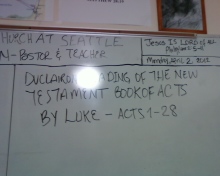 CHURCH AT SEATTLE
N- PASTOR & TEACHER
JESUS IS LORD OF ALL
Monday, April 2, 2012
READING OF THE NEW
TESTAMENT BOOK OF ACTS
BY LUKE - ACTS 1-28